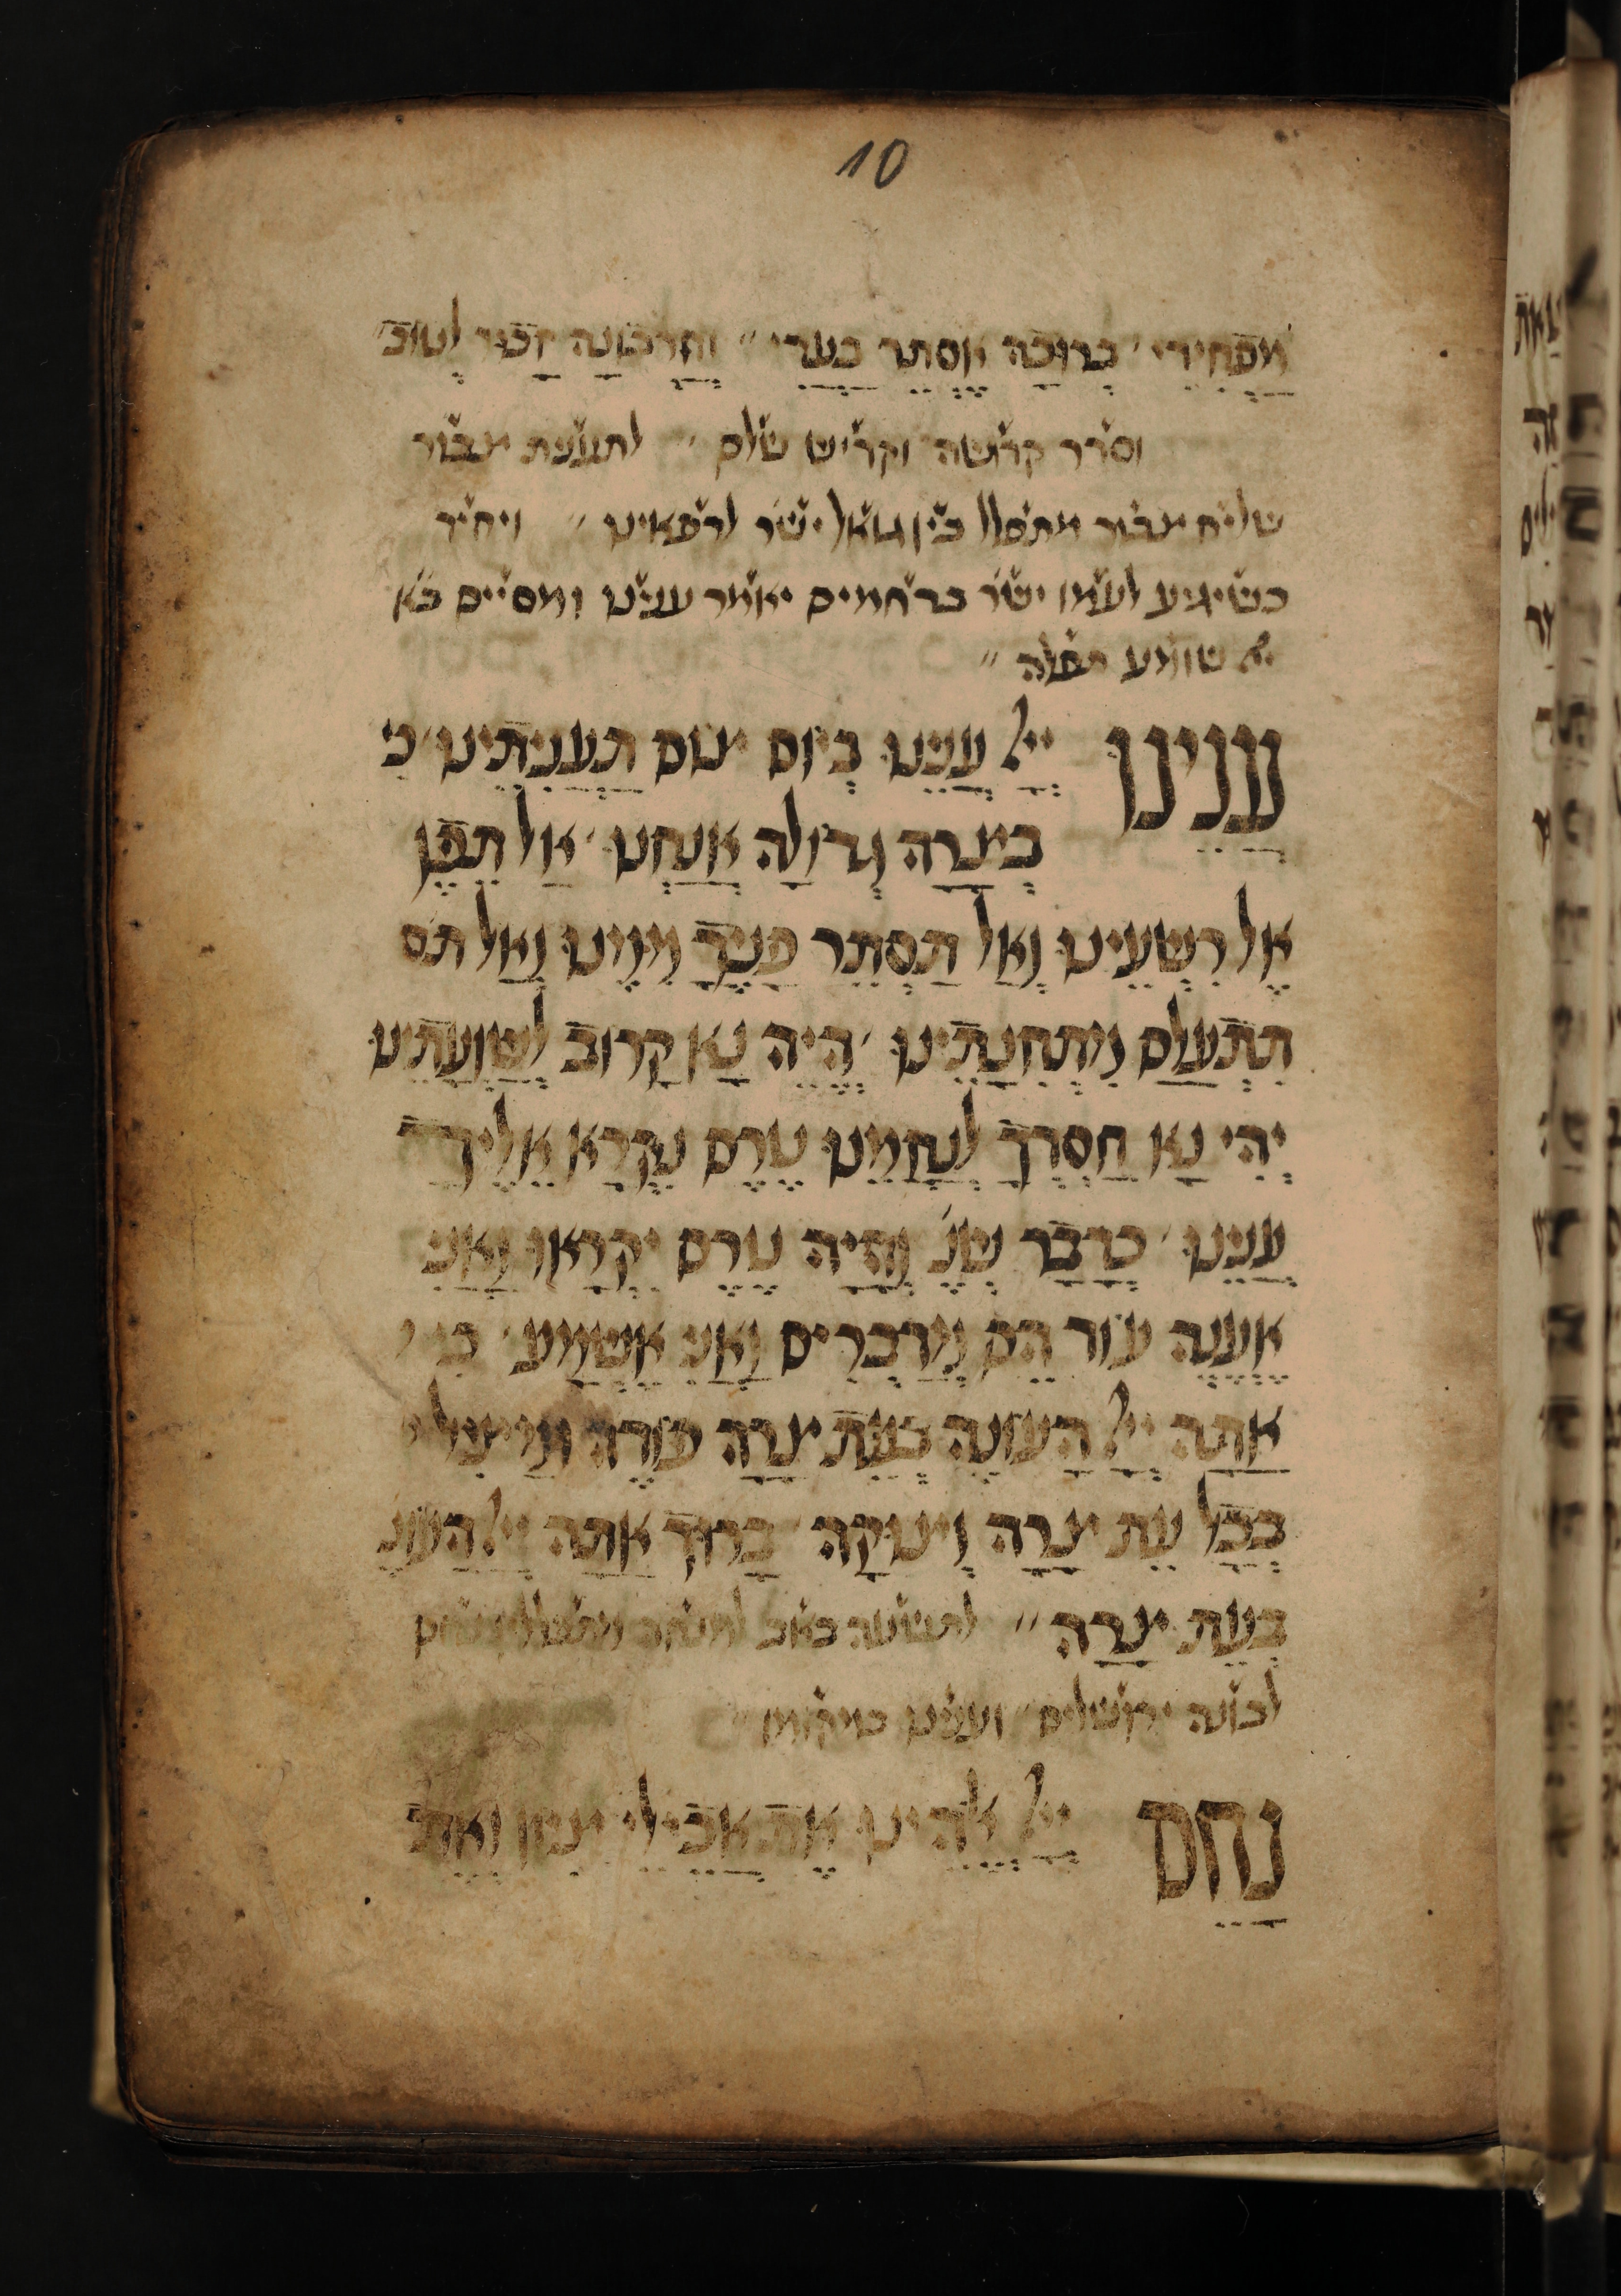 10
מַפְחִידִי׳ בְרוּכָה אֶסְתֵר בַעֲדִי״ וְחַרְבוֹנָה זָכוּר לְטוֹב׳
וסדר קדושה וקדיש שלם״ לתענית צבור
שליח צבור מתפלל בין גואל ישר׳ לרפאינו״ ויחיד
כשיגיע לעמו ישר׳ ברחמים יאמר עננו ומסיים בא׳
יי׳ שומע תפלה״
עֲנֵינוּ יְיָ עֲנֵנוּ בְיוֹם צוֹם תַעֲנִיתֵינוּ׳ כִי
בְצָרָה גְדוֹלָה אֲנַחְנוּ׳ אַל תֵפֶן
אֶל רִשְעֵינוּ וְאַל תַסְתֵר פָנֶיךָ מִמֶנוּ וְאַל תס׳
תִתְעַלַם מִתְחִנָתֵינוּ׳ הֱיֵה נָא קָרוֹב לְשַוְעָתֵינוּ
יְהִי נָא חַסְדְךָ לְנַחֲמֵנוּ טֶרֶם נִקְרָא אֵלֶיךָ
עֲנֵנוּ׳ כַדָבָר שֶנֶ׳ וְהָיָה טֶרֶם יִקְרָאוּ וַאֲנִי
אֶעֱנֶה עוֹד הֵם מְדַבְרִים וַאֲנִי אֶשְמָע׳ כִי
אַתָה יְיָ הָעוֹנֶה בְעֵת צָרָה פוֹדֶה וּמַצִיל
בְכָל עֵת צָרָה וְצוּקָה׳ בָרוּךְ אַתָה יְיָ הָעוֹנֶ׳
בְעֵת צָרָה״ לתשעה באב
לבונה ירושלים״ ועננו במקומו״
נַחֵם יְיָ אֱלֹהֵינוּ אֶת אֲבֵילֵי צִיוֹן וְאֶת